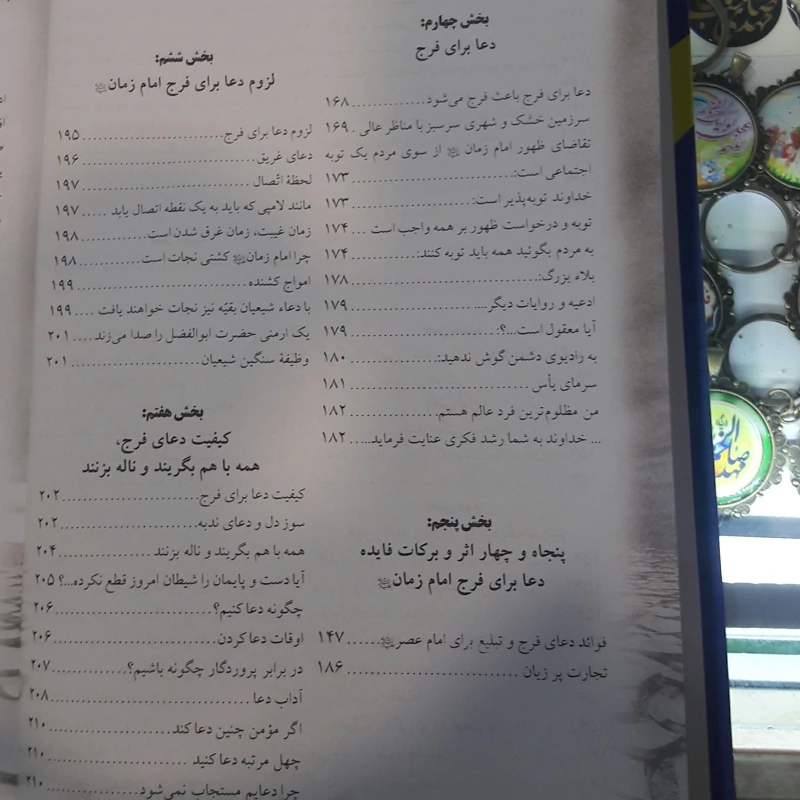 بخش چهارم:
دعا برای فرج
دعا برای فرج باعث فرج می‌شود.............. ۱۶۸
سرزمین خشک و شهری سرسبز با مناظر عالی . ۱۶۹
تقاضای ظهور امام زمان از سوی مردم یک توبه
اجتماعی است:.............................. ۱۷۳
خداوند توبه‌پذیر است:...................... ۱۷۳
توبه و درخواست ظهور بر همه واجب است ... ۱۷۴
به مردم بگوئید همه باید توبه کنند:............ ۱۷۴
بلاء بزرگ:................................. ۱۷۸
ادعیه و روایات دیگر....................... ۱۷۹
آیا معقول است...؟:........................ ۱۷۹
به رادیوی دشمن گوش ندهید:............... ۱۸۰
سرمای یأس .............................. ۱۸۱
من مظلوم‌ترین فرد عالم هستم............... ۱۸۲
... خداوند به شما رشد فکری عنایت فرماید..... ۱۸۲
بخش پنجم:
پنجاه و چهار اثر و برکات فایده
دعا برای فرج امام زمان
فوائد دعای فرج و تبلیغ برای امام عصر...... ۱۴۷
تجارت پر زیان ............................ ۱۸۶
بخش ششم:
لزوم دعا برای فرج امام زمان
لزوم دعا برای فرج......................... ۱۹۵
دعای غریق............................... ۱۹۶
لحظهٔ اتّصال .............................. ۱۹۷
مانند لامپی که باید به یک نقطه اتصال یابد ..... ۱۹۷
زمان غیبت، زمان غرق شدن است............ ۱۹۸
چرا امام زمان کشتی نجات است............ ۱۹۸
امواج کشنده.............................. ۱۹۹
با دعاء شیعیان بقیّه نیز نجات خواهند یافت .... ۱۹۹
یک ارمنی حضرت ابوالفضل را صدا می‌زند.... ۲۰۱
وظیفهٔ سنگین شیعیان...................... ۲۰۱
بخش هفتم:
کیفیت دعای فرج،
همه با هم بگریند و ناله بزنند
کیفیت دعا برای فرج........................ ۲۰۲
سوز دل و دعای ندبه....................... ۲۰۲
همه با هم بگریند و ناله بزنند ................ ۲۰۴
آیا دست و پایمان را شیطان امروز قطع نکرده...؟ ۲۰۵
چگونه دعا کنیم؟.......................... ۲۰۶
اوقات دعا کردن........................... ۲۰۶
در برابر پروردگار چگونه باشیم؟............. ۲۰۷
آداب دعا ................................ ۲۰۸
اگر مؤمن چنین دعا کند.................... ۲۱۰
چهل مرتبه دعا کنید ....................... ۲۱۰
چرا دعایم مستجاب نمی‌شود................ ۲۱۰